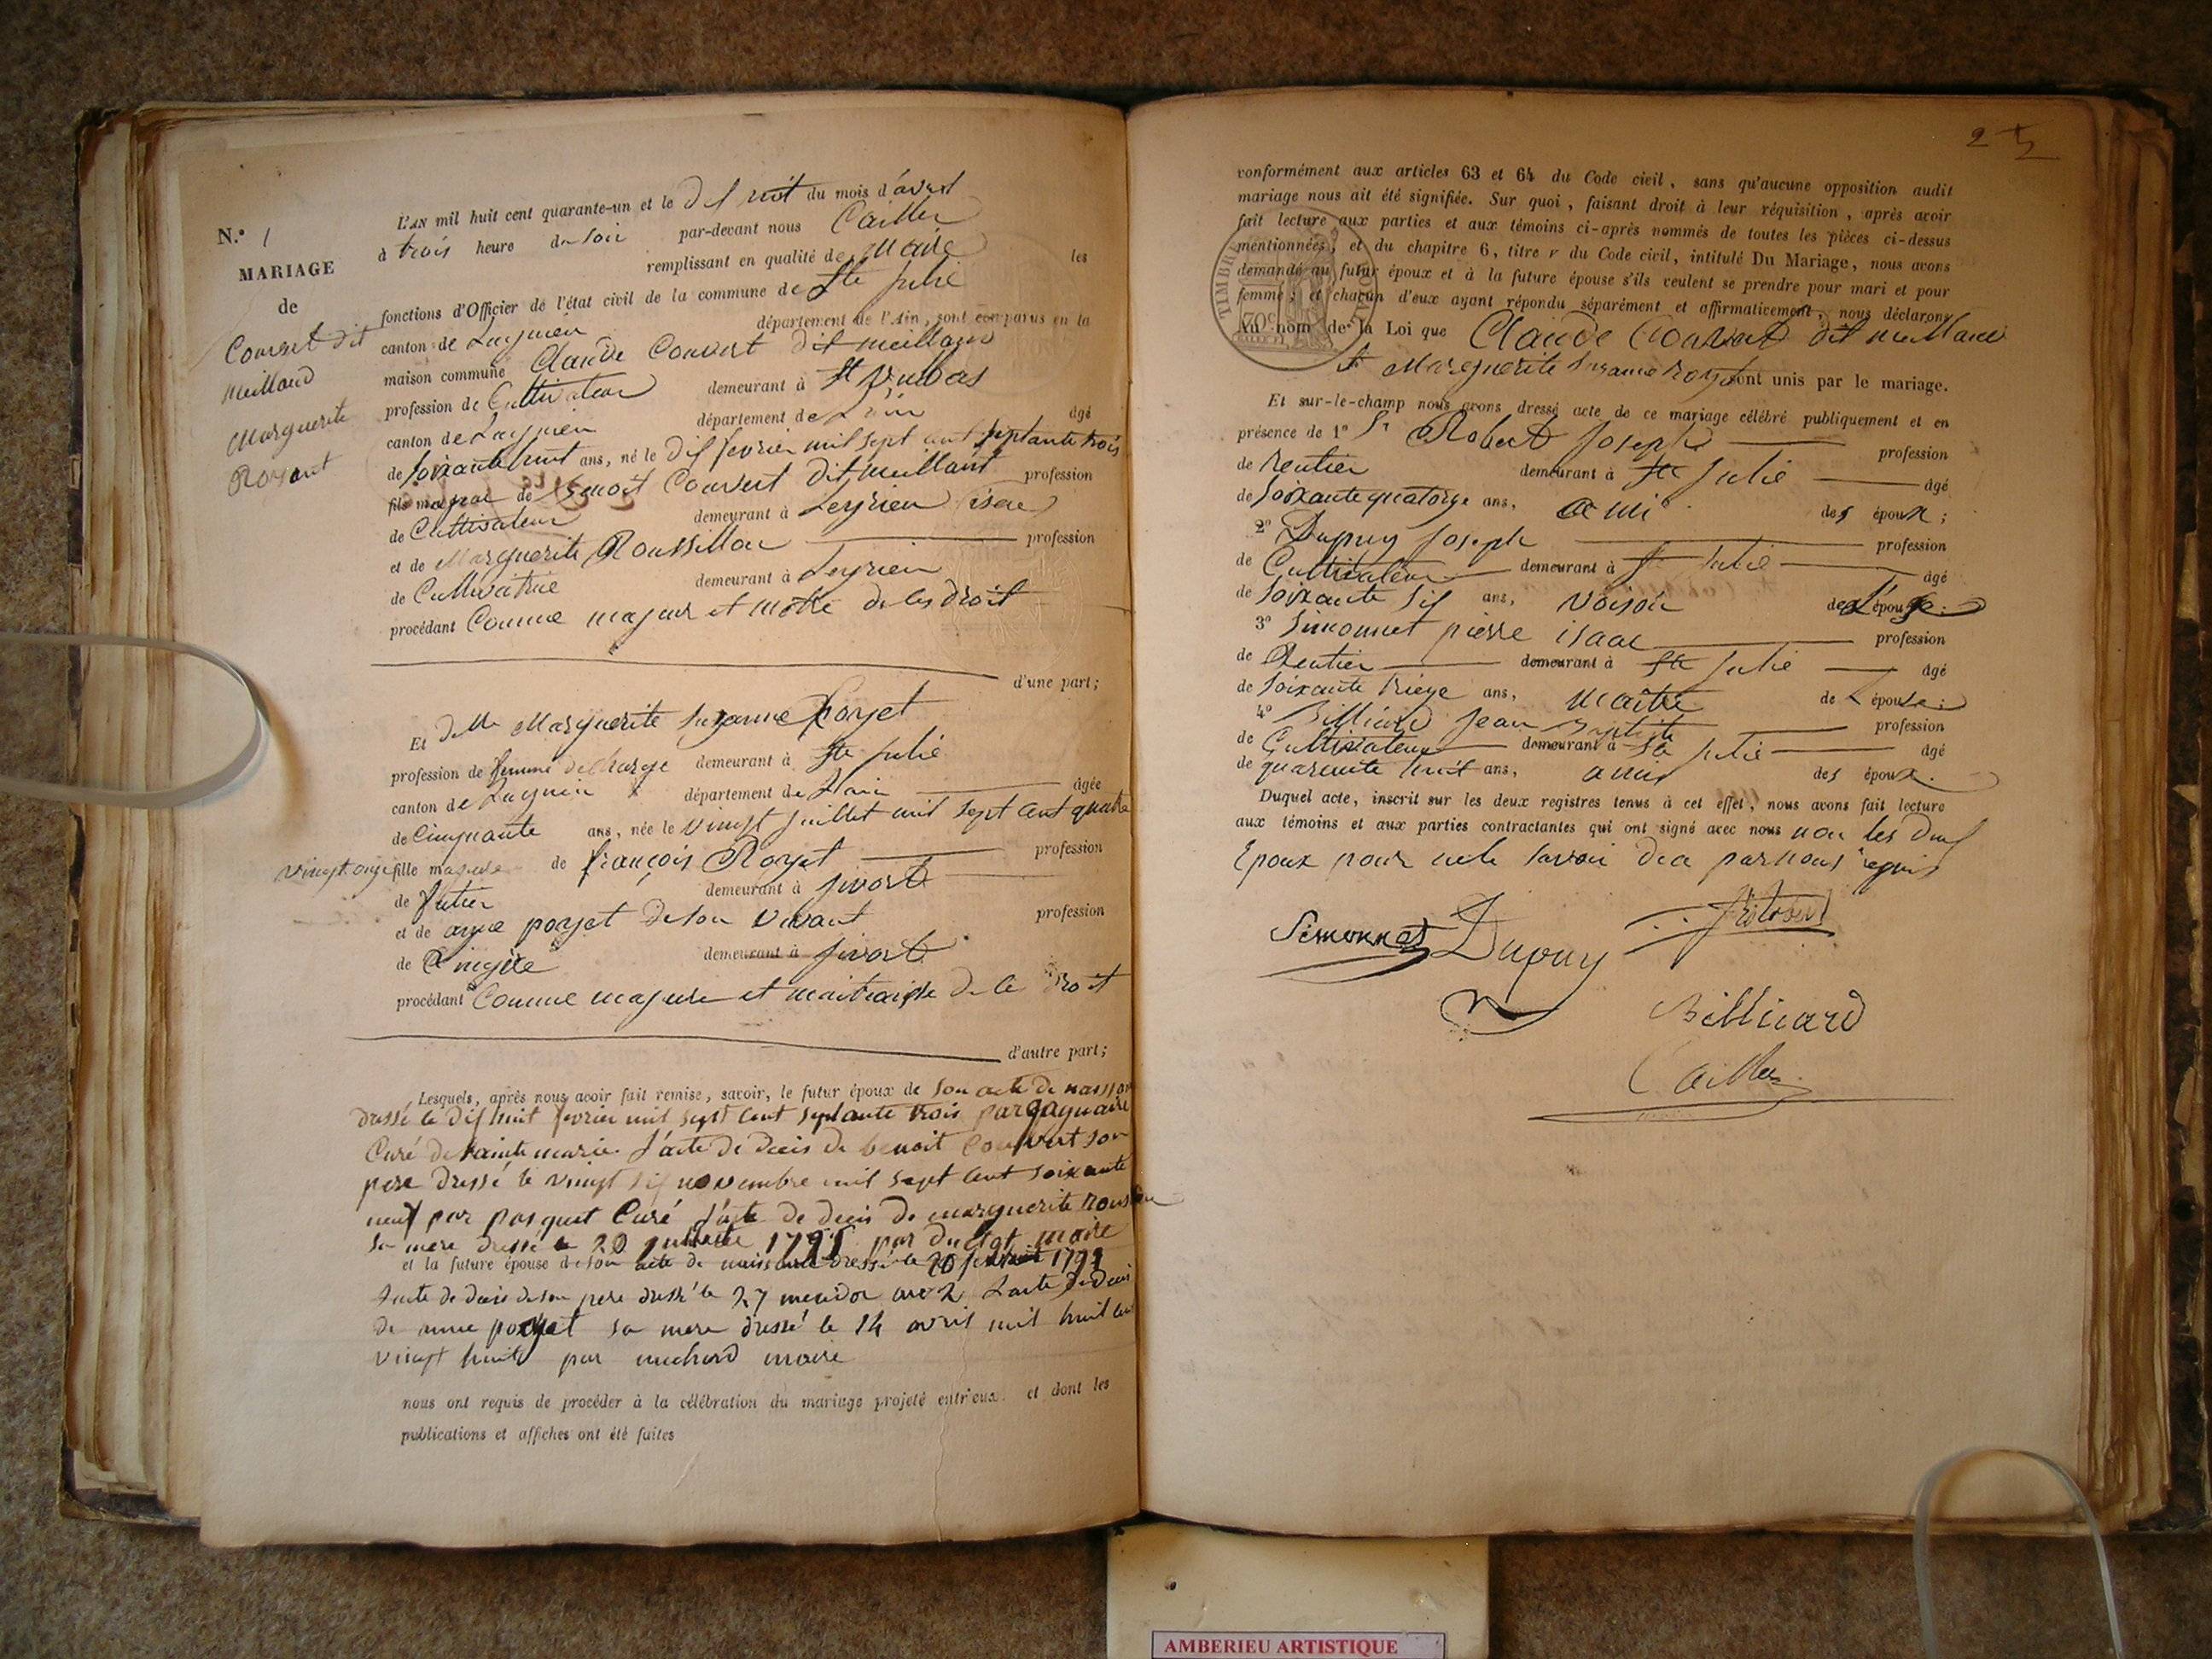 N.° 1
MARIAGE
de
Convert dit
meilland
Marguerite
Royant
L'AN mil huit cent quarante-un et le dix huit du mois d'avril
à trois heure du soir par-devant nous Cailler
remplissant en qualité de Maire les
fonctions d'Officier de l'état civil de la commune de Ste Julie
canton de Lagnieu département de l'Ain, sont comparus en la
maison commune Claude Convert dit meilland
profession de Cultivateur demeurant à St Vulbas
canton de Lagnieu département de L'ain âgé
de soixante huit ans, né le dix fevrier mil sept cent septante trois
fils majeur de Benoit Convert dit meillant profession
de Cultivateur demeurant à Leyrieu (isere)
et de Marguerite Roussillon profession
de Cultivatrice demeurant à Leyrieu
procédant Comme majeur et maitre de ses droit
d'une part;
Et delle Marguerite Suzanne Royet
profession de femme decharge demeurant à Ste Julie
canton de Lagnieu département de L'ain âgée
de Cinquante ans, née le vingt juillet mil sept cent quatre
vingt onze fille majeure de françois Royet profession
de demeurant à Givort
et de anne poyet de son vivant profession
de demeurant à Givort
procédant Comme majeure et maitraisse de ce droit
d'autre part;
Lesquels, après nous avoir fait remise, savoir, le futur époux de son acte de naissan
dressé le dix huit fevrier mil sept cent septante trois par
Curé de sainte marie l'acte de deces de benoit Convert son
pere dressé le vingt six novembre mil sept cent soixante
neuf par pasquet Curé l'acte de deces de marguerite roussillon
sa mere dressé le 20 1795 par maire
et la future épouse de son acte de naissance dressé le 20 1791
l'acte de deces de son pere dressé le 27 mesidor an 2 L'acte de deces
de anne poyet sa mere dressé le 14 avril mil huit cent
vingt huit par michard maire
nous ont requis de procéder à la célébration du mariage projeté entr'eux et dont les
publications et affiches ont été faites
2
conformément aux articles 63 et 64 du Code civil, sans qu'aucune opposition audit
mariage nous ait été signifiée. Sur quoi, faisant droit à leur réquisition, après avoir
fait lecture aux parties et aux témoins ci-après nommés de toutes les pièces ci-dessus
mentionnées, et du chapitre 6, titre v du Code civil, intitulé Du Mariage, nous avons
demandé au futur époux et à la future épouse s'ils veulent se prendre pour mari et pour
femme; et chacun d'eux ayant répondu séparément et affirmativement, nous déclarons
Au nom de la Loi que Claude Convert dit meilland
et Marguerite Suzanne royet sont unis par le mariage.
Et sur-le-champ nous avons dressé acte de ce mariage célébré publiquement et en
présence de 1° Sr Robert Joseph profession
de rentier demeurant à Ste Julie âgé
de soixante quatorze ans, ami des époux;
2° Dupuy Joseph profession
de Cultivateur demeurant à Ste Julie âgé
de soixante six ans, voisin de L'épouse;
3° Simonnet pierre isaac profession
de Rentier demeurant à Ste Julie âgé
de soixante treize ans, maitre de L'épouse;
4° Billiard Jean Baptiste profession
de Cultivateur demeurant à Ste Julie âgé
de quarante huit ans, amis des époux.
Duquel acte, inscrit sur les deux registres tenus à cet effet, nous avons fait lecture
aux témoins et aux parties contractantes qui ont signé avec nous non les deux
Epoux pour ne le savoir de ce par nous requis
Simonnet Dupuy JRobert
Billiard
Cailler
TIMBRE ROYAL
70c
AMBERIEU ARTISTIQUE